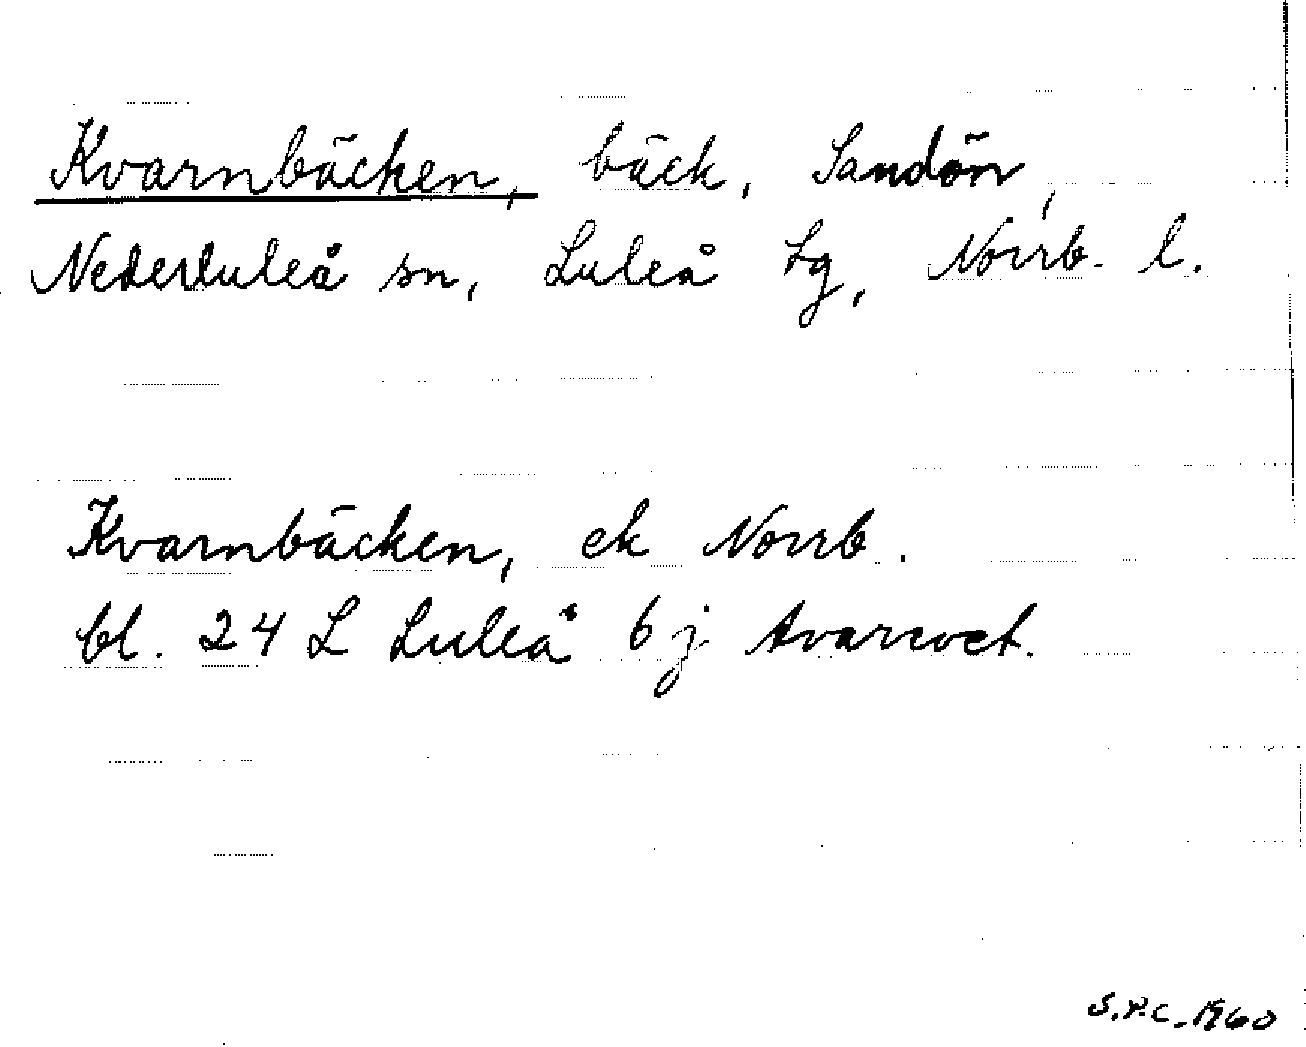 Kvarnbäcken, bäck, Sandön,
Nederluleå sn, Luleå tg, Norrb. l.
Kvarnbäcken, ek Norrb.
bl. 24 L Luleå 6 j
S.P.C. 1960